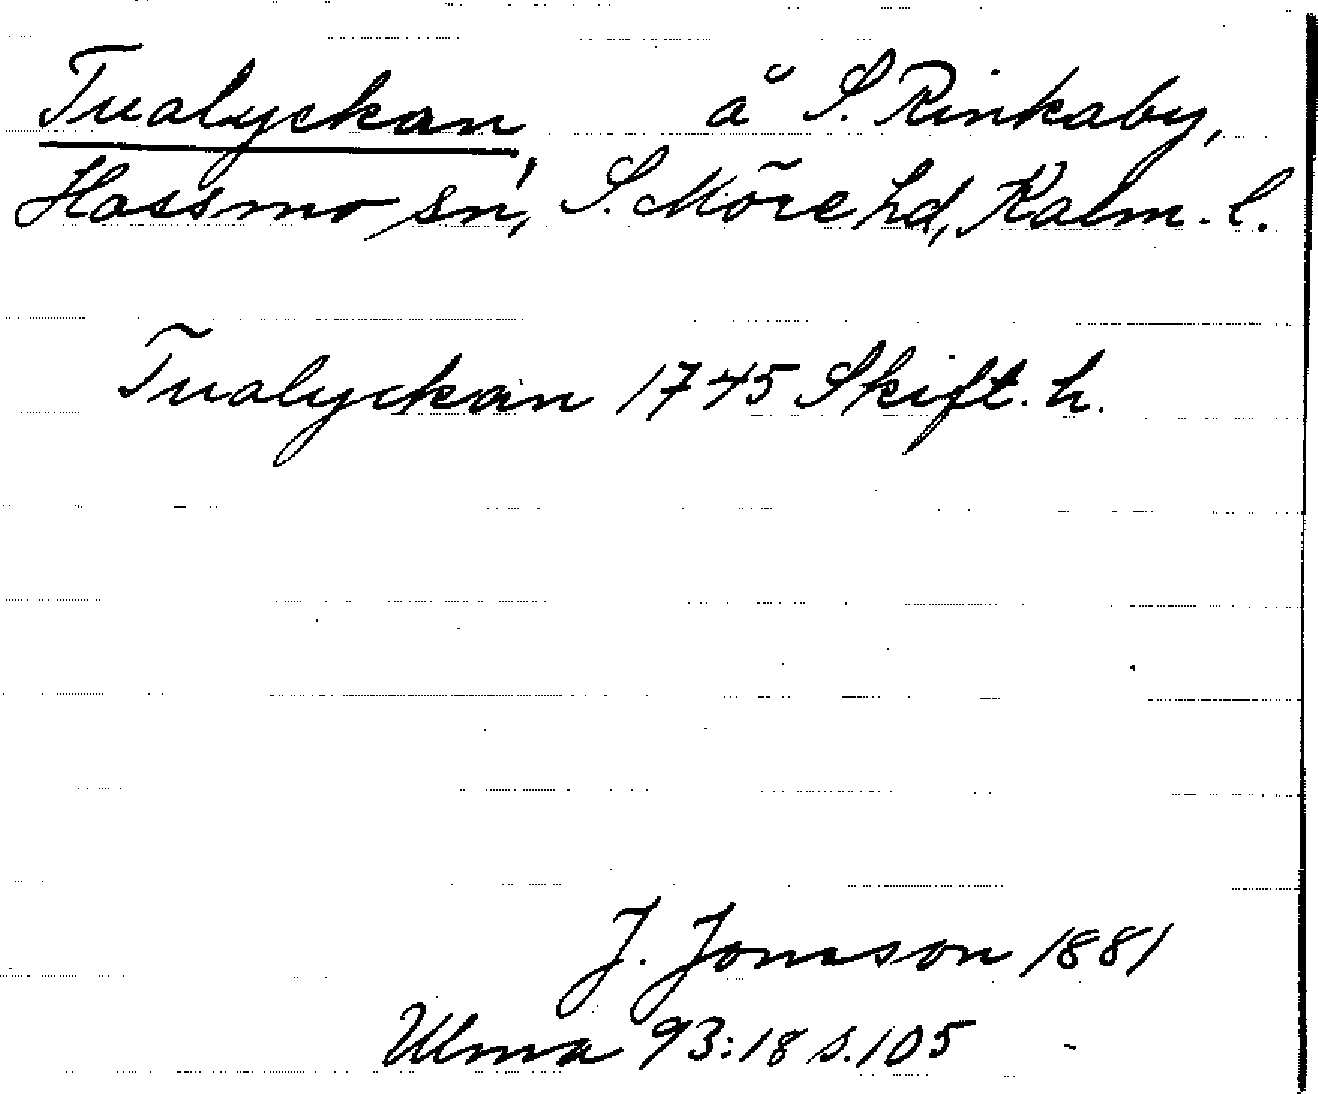 Tualyckan å S. Rinkaby,
Hossmo sn, S. Möre hd, Kalm. l.
Tualyckan 1745 Skift. h.
J. Jonsson 1881
Ulma 93:18 s. 105